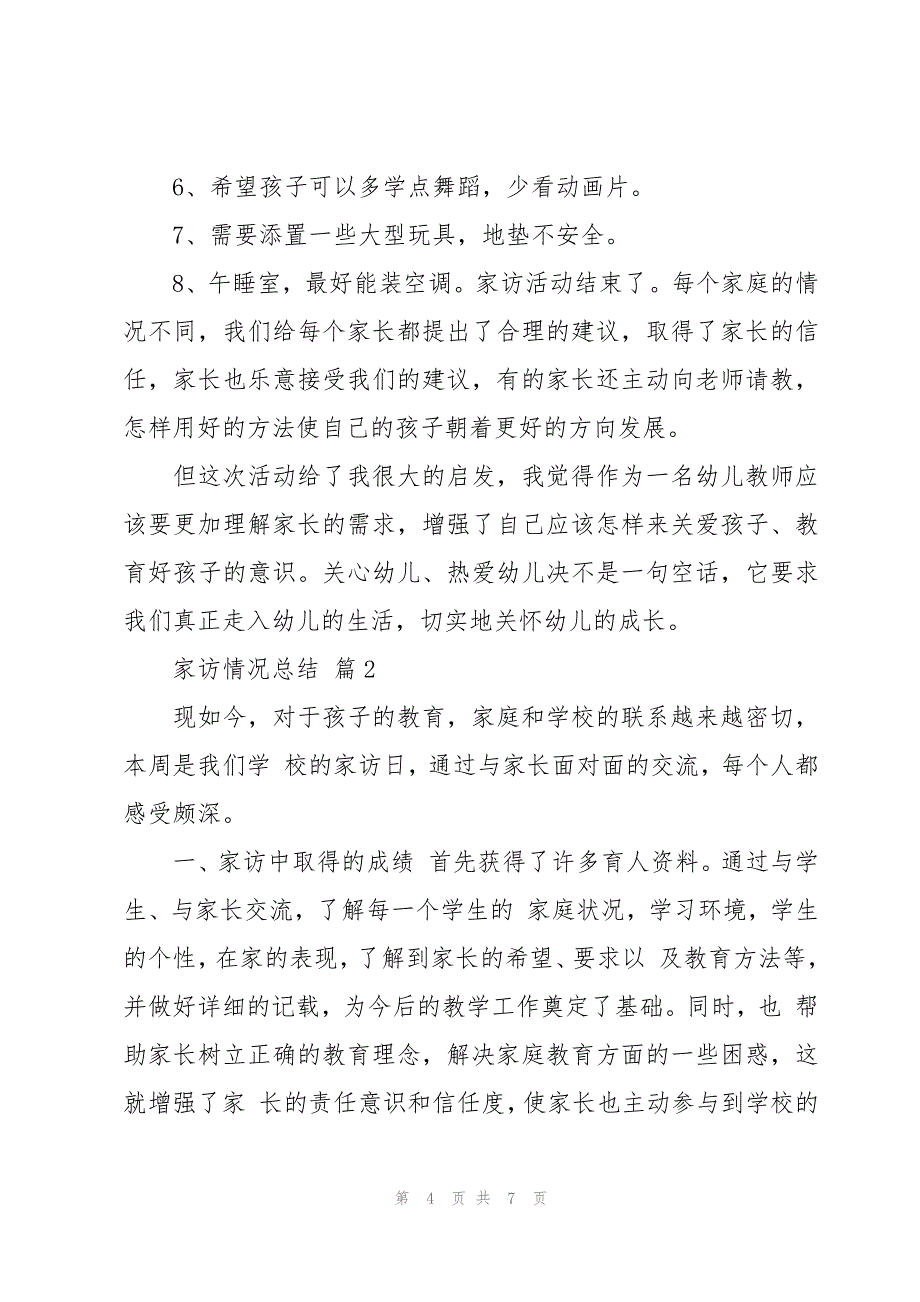 6、希望孩子可以多学点舞蹈，少看动画片。
7、需要添置一些大型玩具，地垫不安全。
8、午睡室，最好能装空调。家访活动结束了。每个家庭的情
况不同，我们给每个家长都提出了合理的建议，取得了家长的信
任，家长也乐意接受我们的建议，有的家长还主动向老师请教，
怎样用好的方法使自己的孩子朝着更好的方向发展。
但这次活动给了我很大的启发，我觉得作为一名幼儿教师应
该要更加理解家长的需求，增强了自己应该怎样来关爱孩子、教
育好孩子的意识。关心幼儿、热爱幼儿决不是一句空话，它要求
我们真正走入幼儿的生活，切实地关怀幼儿的成长。
家访情况总结 篇2
现如今，对于孩子的教育，家庭和学校的联系越来越密切，
本周是我们学 校的家访日，通过与家长面对面的交流，每个人都
感受颇深。
一、家访中取得的成绩 首先获得了许多育人资料。通过与学
生、与家长交流，了解每一个学生的 家庭状况，学习环境，学生
的个性，在家的表现，了解到家长的希望、要求以 及教育方法等，
并做好详细的记载，为今后的教学工作奠定了基础。同时，也 帮
助家长树立正确的教育理念，解决家庭教育方面的一些困惑，这
就增强了家 长的责任意识和信任度，使家长也主动参与到学校的
第 4 页 共 7 页